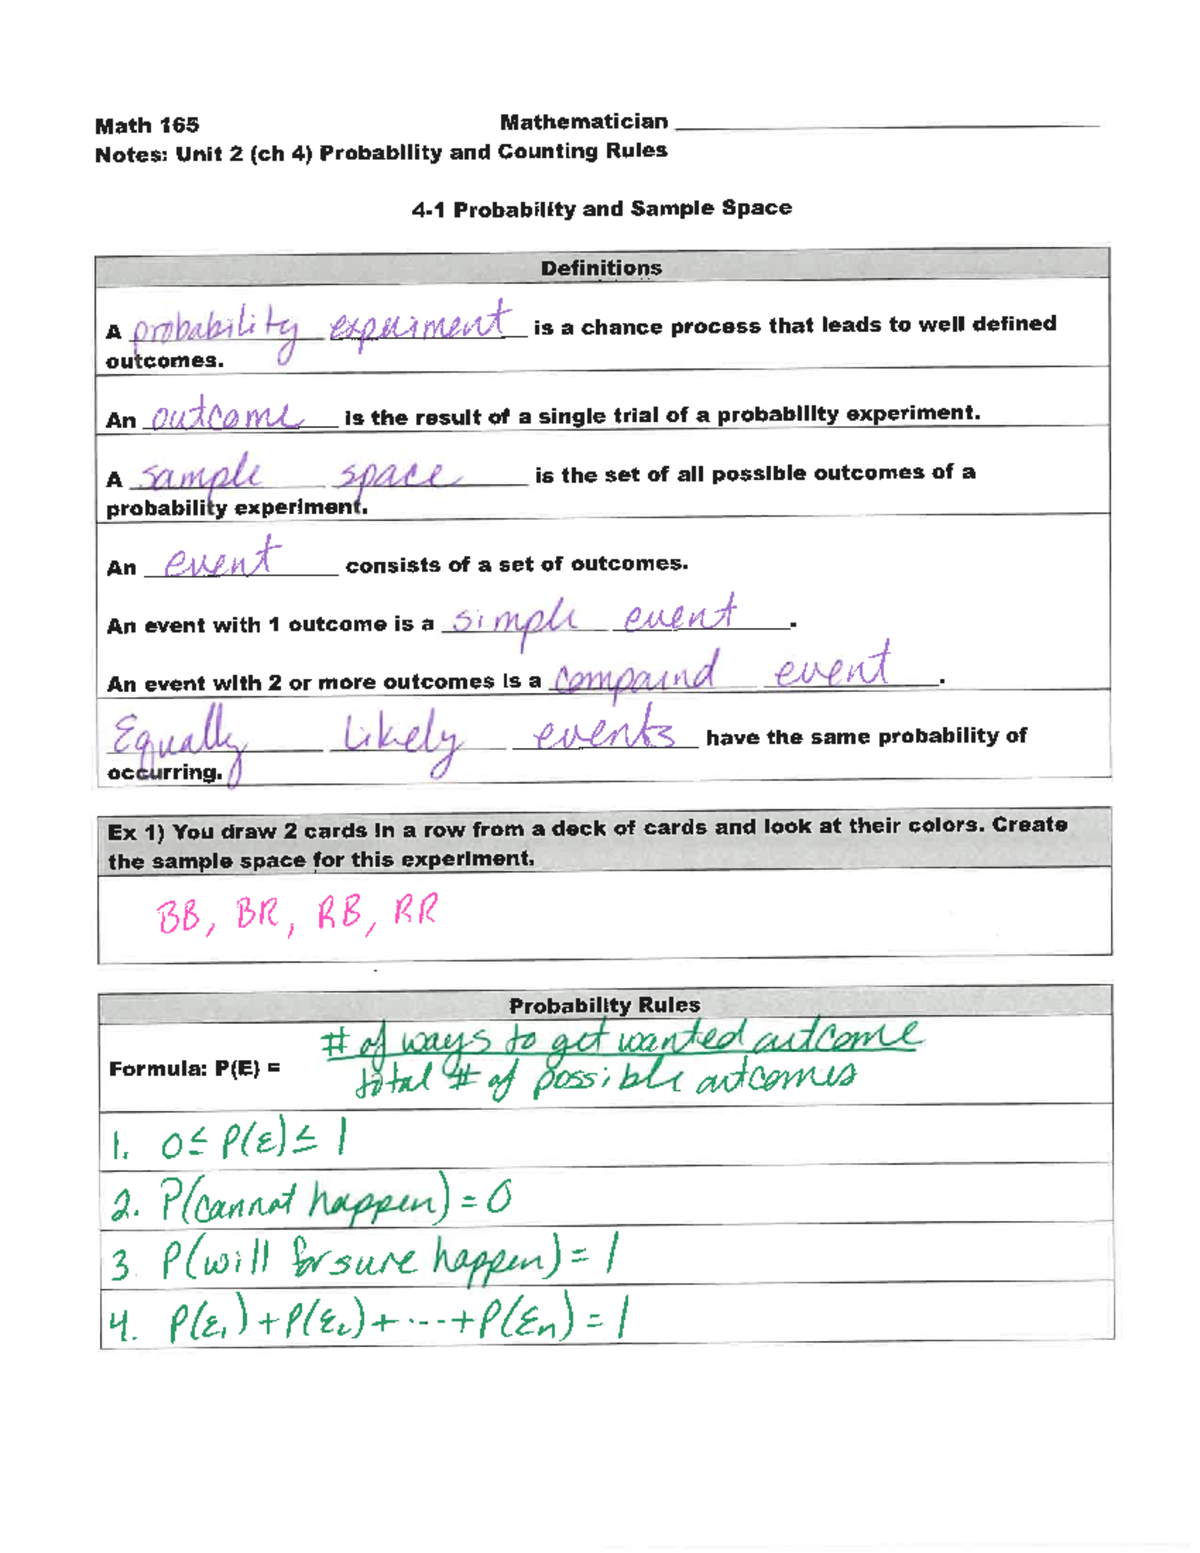 Math 165 Mathematician
Notes: Unit 2 (ch 4) Probability and Counting Rules
4-1 Probability and Sample Space
Definitions
A probability experiment is a chance process that leads to well defined
outcomes.
An outcome is the result of a single trial of a probability experiment.
A sample space is the set of all possible outcomes of a
probability experiment.
An event consists of a set of outcomes.
An event with 1 outcome is a simple event.
An event with 2 or more outcomes is a compound event.
Equally Likely events have the same probability of
occurring.
Ex 1) You draw 2 cards in a row from a deck of cards and look at their colors. Create
the sample space for this experiment.
BB, BR, RB, RR
Probability Rules
# of ways to get wanted outcome
Formula: P(E) =
total # of possible outcomes
1. 0 ≤ P(E) ≤ 1
2. P(cannot happen) = 0
3. P(will for sure happen) = 1
4. P(E₁) + P(E₂) + ---- + P(Eₙ) = 1